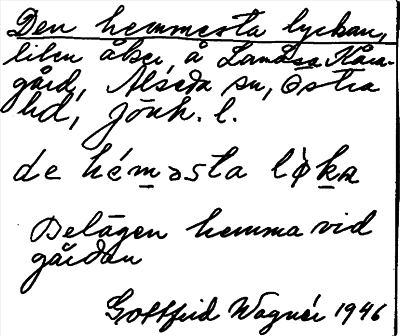 Den hemmesta lyckan,
liten åker, å Landsa Kåra-
gård, Alseda sn, Östra
hd, Jönk. l.
de hém̲əsta lø̀k̲a
Belägen hemma vid
gården
Gottfrid Wagnér 1946